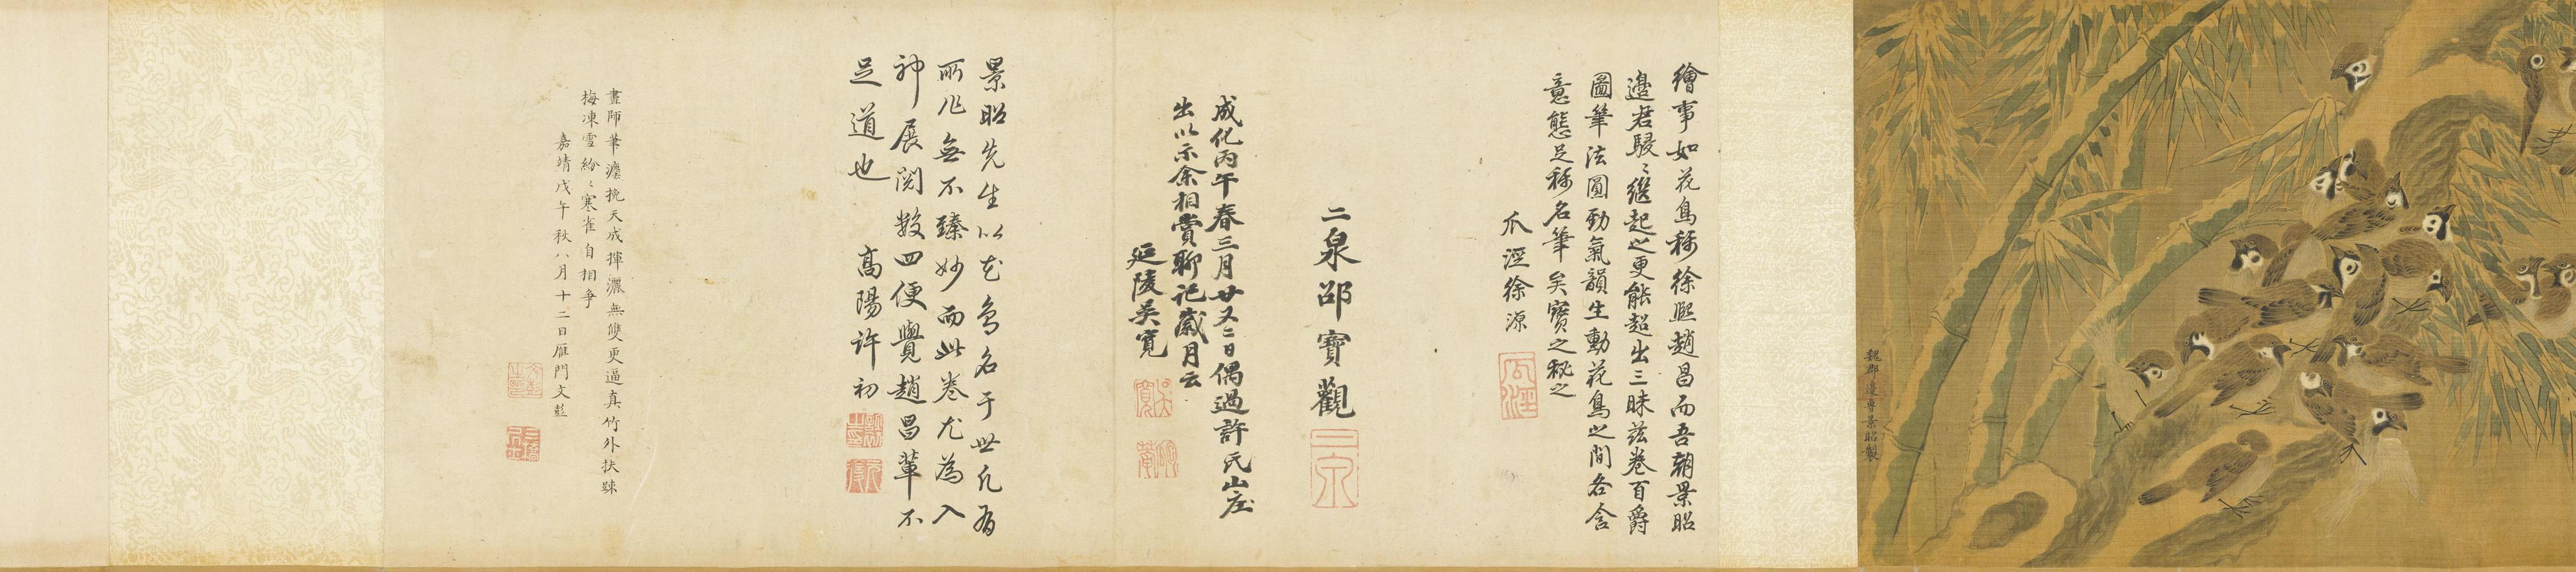 魏郡邊專景昭製
繪事如花鳥稱徐熙趙昌而吾朝景昭
邊君駸〻繼起之更能超出三昧茲卷百爵
圖筆法圓勁氣韻生動花鳥之間各含
意態足稱名筆矣寶之秘之
瓜涇徐源
瓜涇
二泉邵寶觀
二泉
成化丙午春三月廿又二日偶過許氏山庄
出以示余相賞聊記歲月云
延陵吳寬
吳寬
景昭先生以花鳥名于世凡有
所作無不臻妙而此卷尤為入
神展閱數四便覺趙昌輩不
足道也
高陽許初
畫師筆灑挽天成揮灑無雙更逼真竹外扶踈
梅凍雪紛〻寒雀自相爭
嘉靖戊午秋八月十二日雁門文彭